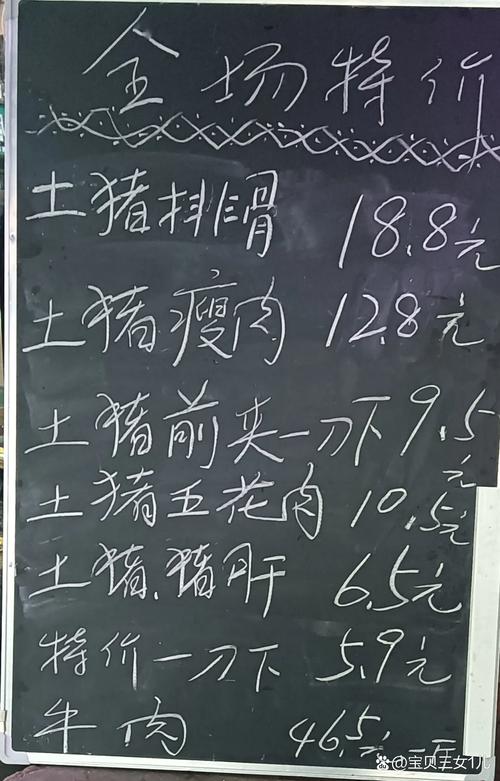 全场特价
土猪排骨 18.8元
土猪瘦肉 12.8元
土猪前夹一刀下 9.5元
土猪五花肉 10.5元
土猪.猪肝 6.5元
特价一刀下 5.9元
牛肉 46.5元一斤